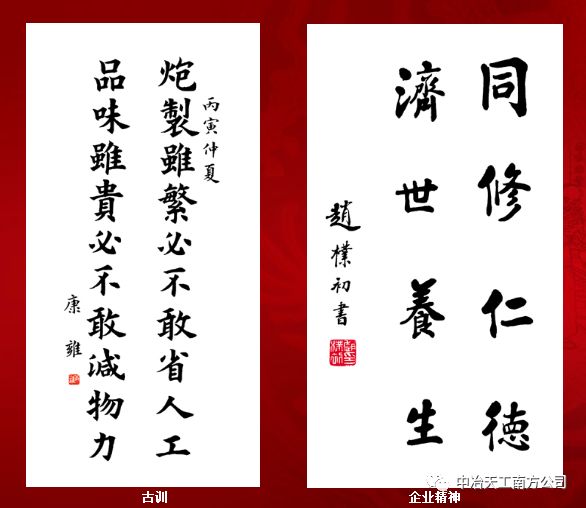 炮製雖繁必不敢省人工
丙寅仲夏
品味雖貴必不敢減物力
康雍
同修仁德
濟世養生
趙樸初書
古训
企业精神
中冶天工南方公司